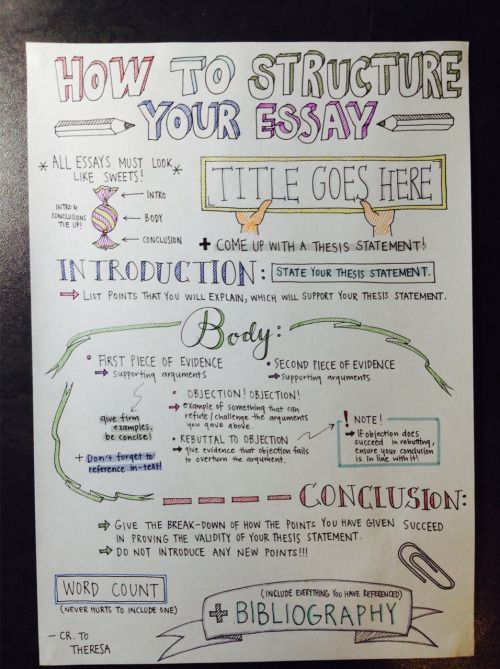 HOW TO STRUCTURE
YOUR ESSAY
* ALL ESSAYS MUST LOOK *
LIKE SWEETS!
INTRO &
CONCLUSIONS
TIE UP!
INTRO
BODY
CONCLUSION
TITLE GOES HERE
+ COME UP WITH A THESIS STATEMENT!
INTRODUCTION: STATE YOUR THESIS STATEMENT.
⇒ LIST POINTS THAT YOU WILL EXPLAIN, WHICH WILL SUPPORT YOUR THESIS STATEMENT.
Body:
• FIRST PIECE OF EVIDENCE
⇒ supporting arguments
• SECOND PIECE OF EVIDENCE
⇒ supporting arguments
give firm
examples,
be concise!
+ Don't forget to
reference in-text!
• OBJECTION! OBJECTION!
⇒ example of something that can
refute/challenge the arguments
you gave above.
• REBUTTAL TO OBJECTION
⇒ give evidence that objection fails
to overturn the argument.
! NOTE!
⇒ If objection does
succeed in rebutting,
ensure your conclusion
is in line with it!
CONCLUSION:
⇒ GIVE THE BREAK-DOWN OF HOW THE POINTS YOU HAVE GIVEN SUCCEED
IN PROVING THE VALIDITY OF YOUR THESIS STATEMENT.
⇒ DO NOT INTRODUCE ANY NEW POINTS!!!
WORD COUNT
(NEVER HURTS TO INCLUDE ONE)
(INCLUDE EVERYTHING YOU HAVE REFERENCED)
+ BIBLIOGRAPHY
- CR. TO
THERESA